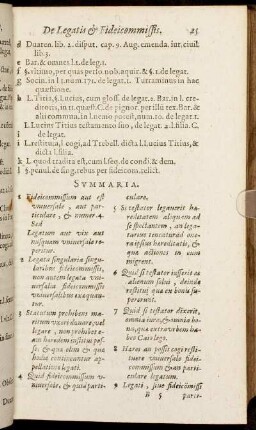 De Legatis & Fideicommissis. 25
d Duaren. lib. 2. disput. cap. 9. Aug. emenda. iur. ciuil. lib. 3.
e Bar. & omnes l. 1. de lega.
f §. vltimo, per quas perso. nob. acquir. & §. 1. de legat.
g Socin. in l. num. 171. de legat. 1. Turraminus in hac
quæstione.
h L. Titia, § Lucius, cum gloss. de legat. 2. Bar. in l. cre-
ditoris, in
alii commu. in l. nemo potest, num. 10. de legat. 1.
i L. Lucius Titius testamento suo, de legat. 2. l. filia. C.
de legat.
l L. restituta, § cogi, ad Trebell. dicta l. Lucius Titius, &
dicta l. filia.
k L. quod traditum est, cum l. seq. de condi. & dem.
§. penul. de sing. rebus per fideicom. relict.
SVMMARIA.
1 Fideicommissum aut est
vniuersale, aut par-
ticulare, & numer. 4.
Sed
Legatum aut vix aut
nusquam vniuersale re-
peritur.
2 Legata singularia singu-
laribus fideicommissis,
non autem legata vniue-
rsalia fideicommissis
vniuersalibus exæquan-
tur.
3 Statutum prohibens ma-
ritum vxori donare, vel
legare, non prohibet e-
am hæredem institui pos-
se, & qua olim & qua
hodie contineantur ap-
pellatione legati.
4 Quid fideicommissum v-
niuersale, & quid parti-
culare.
5 Si testator legauerit hæ-
reditatem aliquem ad
se spectantem, an lega-
tarius teneatur ad one-
ra ipsius hæreditatis, &
an actiones in eum
migrent.
6 Quid si testator iusserit ea
alienam solui, deinde
restitui qua ex bonis su-
perarent.
7 Quid si testator dixerit,
omnia iura, & omnia bo-
na, quæ extra vrbem ha-
beo Caio lego.
8 Hæres an possit cogi resti-
tuere vniuersale fidei-
commissum & an parti-
culare legatum.
9 Legati, siue fideicommissi
B 5 parti-